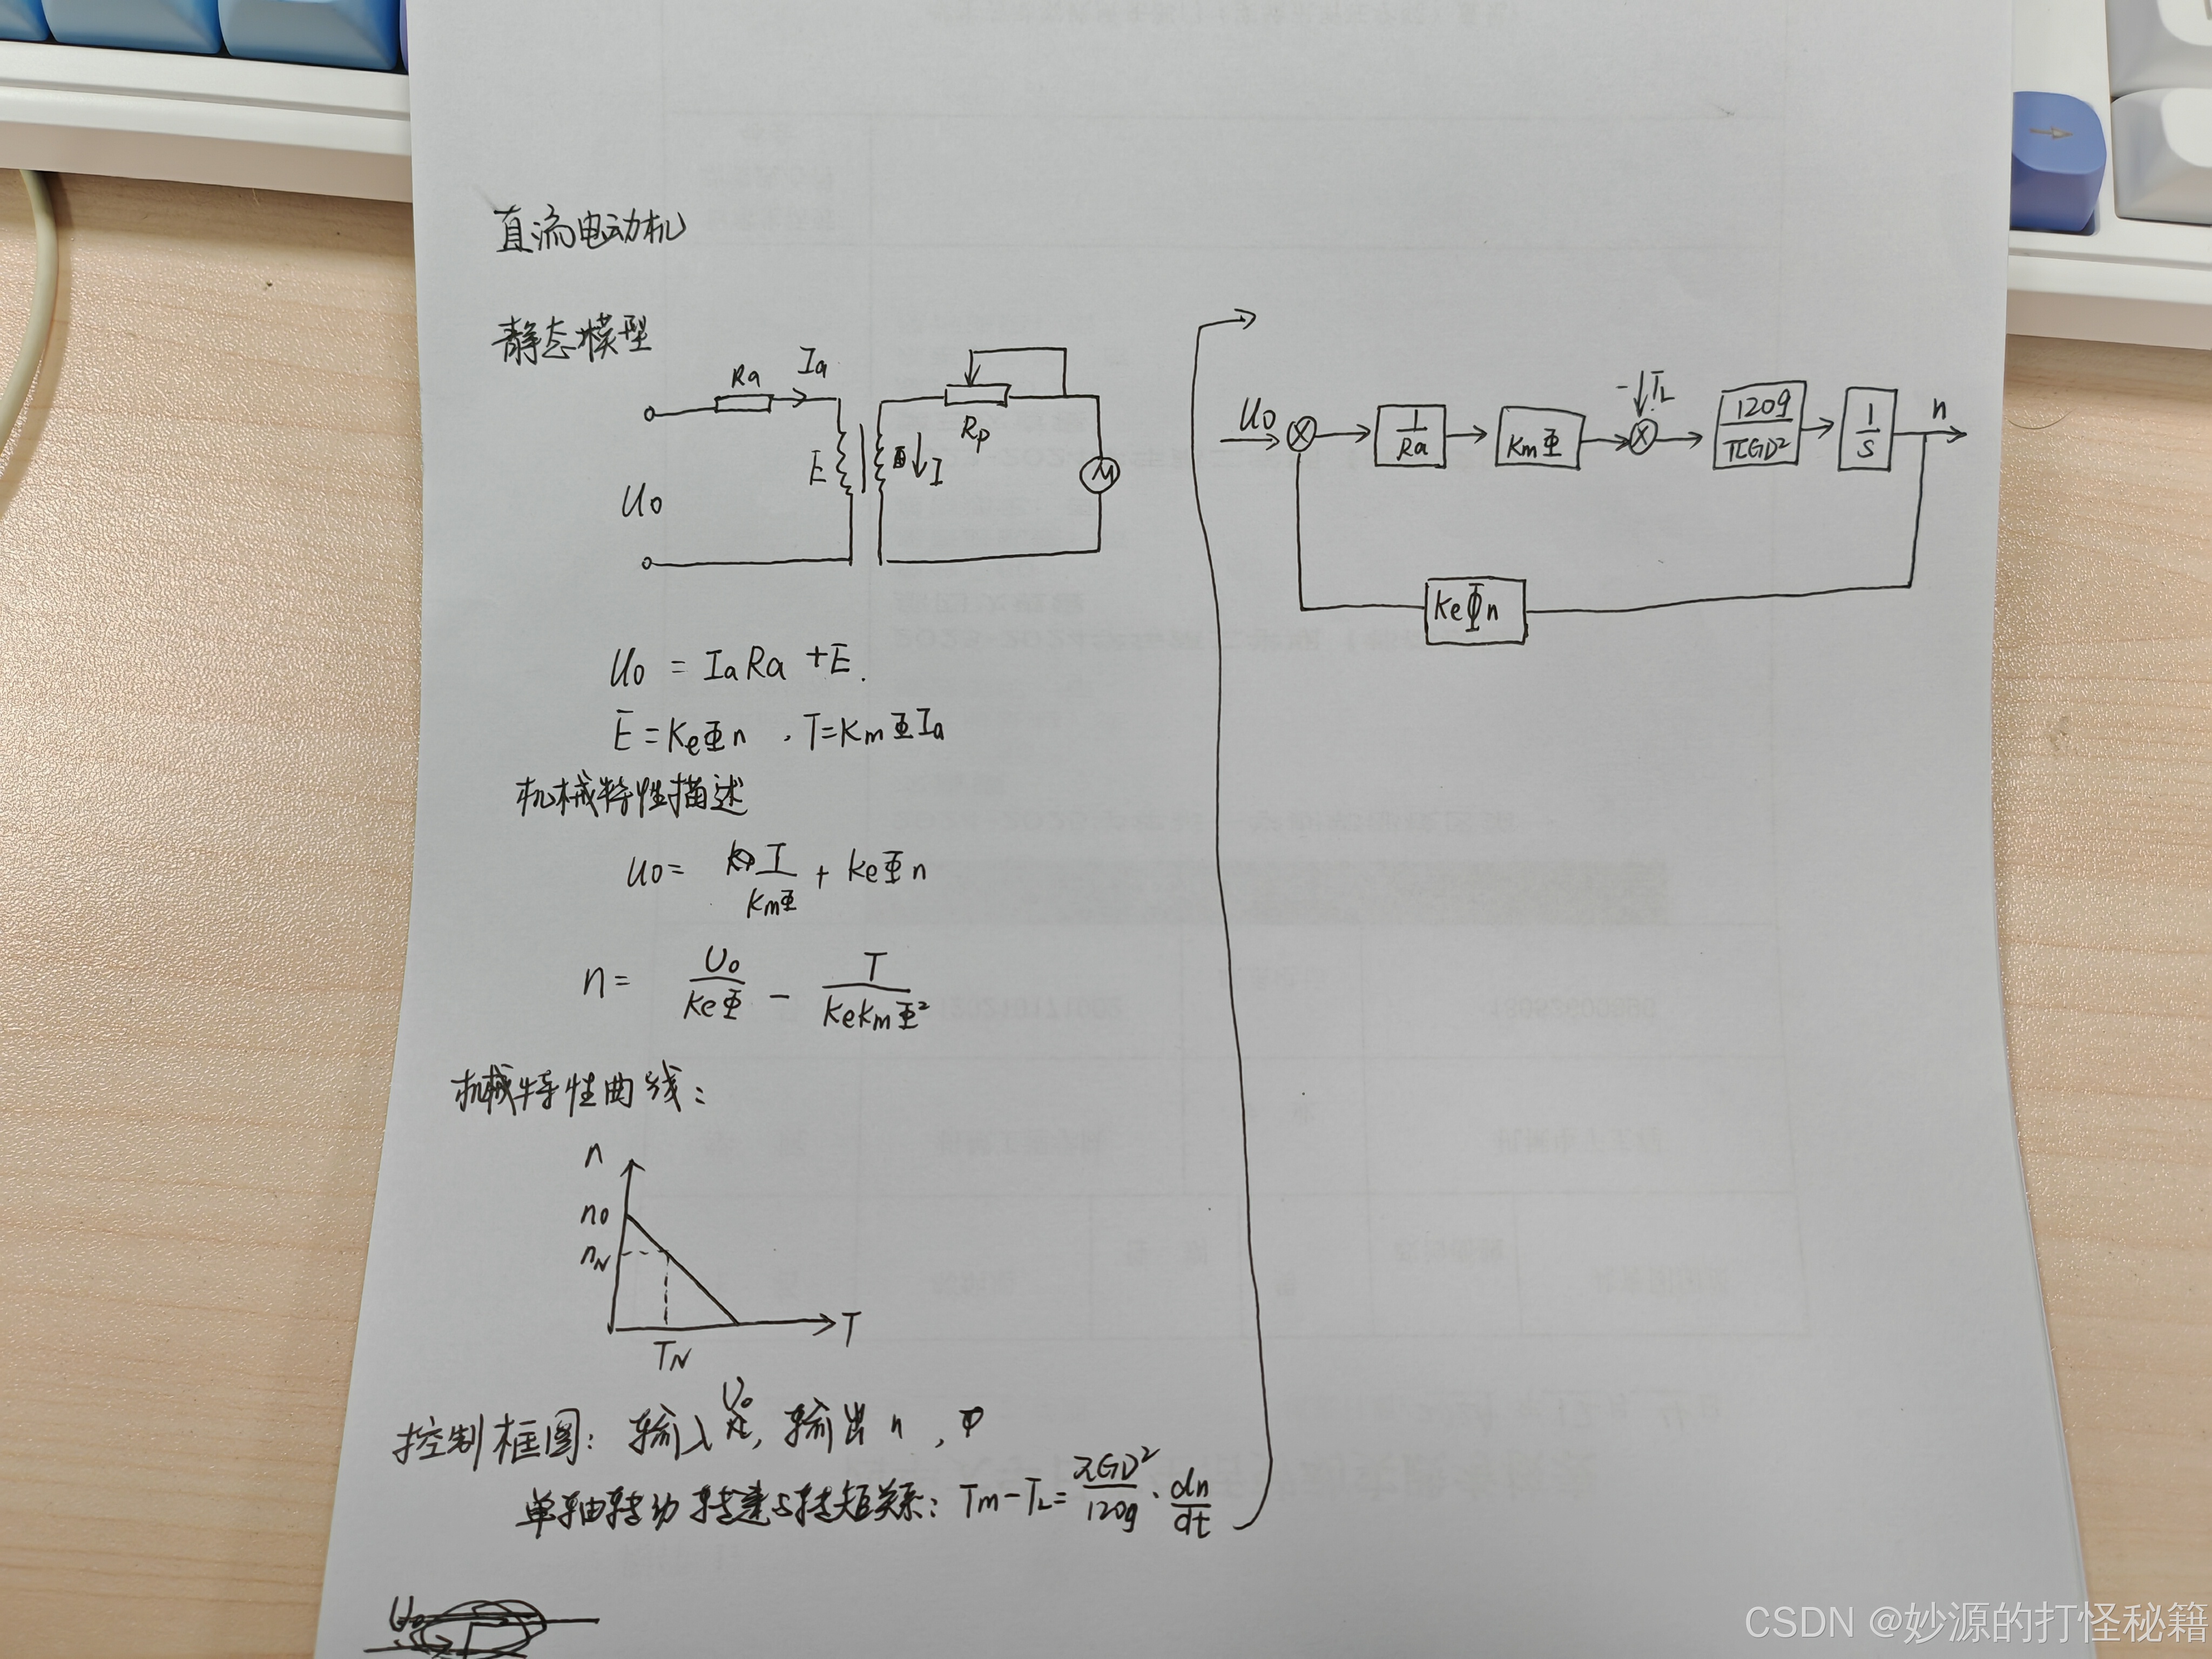 直流电动机
静态模型
Ra
Ia
U0
E
Φ
I
Rp
M
U0 = IaRa + E.
E = KeΦn , T = KmΦIa
机械特性描述
U0 = I / KmΦ + KeΦn
n = U0 / KeΦ - T / KeKmΦ²
机械特性曲线:
n
n0
nN
TN
T
控制框图: 输入 U0, 输出 n , Φ
单轴转动 转速与转矩关系: TM-TL = πGD² / 120g · dn / dt
U0
1 / Ra
KmΦ
- TL
120g / πGD²
1 / S
n
KeΦn
CSDN @妙源的打怪秘籍